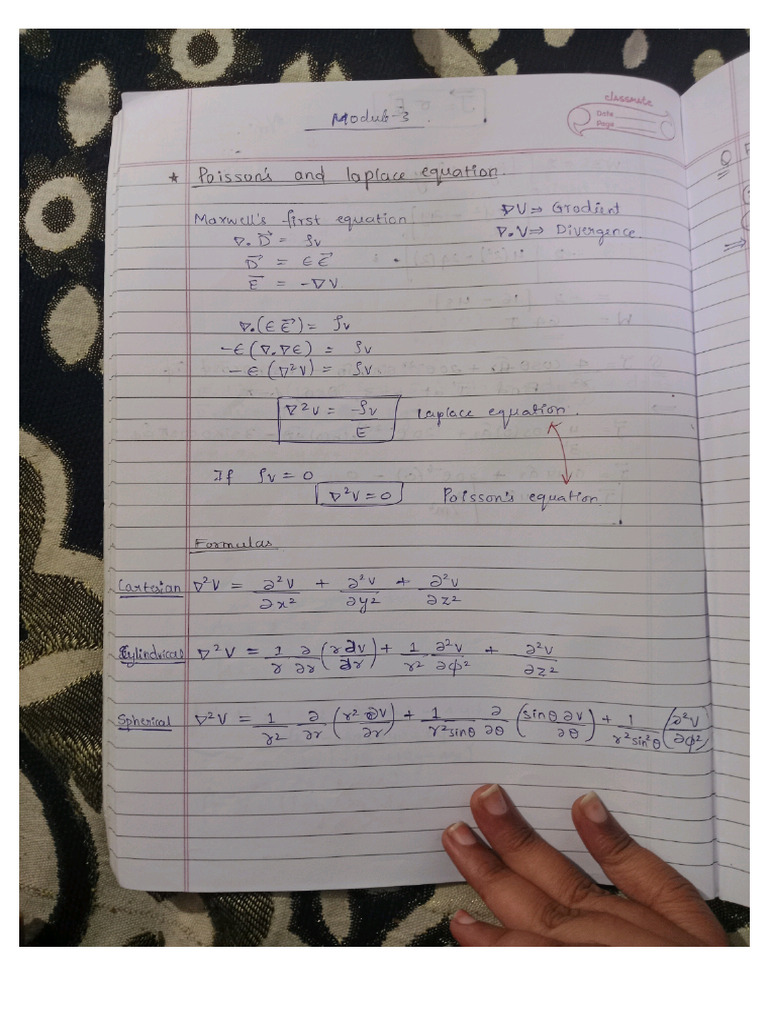 classmate
Date
Page
Module-3
* Poisson's and laplace equation.
Maxwell's first equation
∇V ⇒ Gradient
∇.V ⇒ Divergence
∇.D⃗ = ρv
D⃗ = ϵE⃗
E̅ = -∇V
∇.(ϵE⃗) = ρv
-ϵ(∇.∇ϵ) = ρv
-ϵ(∇²V) = ρv
∇²V = -ρv/E laplace equation.
If ρv = 0
∇²V = 0 Poisson's equation
Formulas
Cartesian ∇²V = ∂²V/∂x² + ∂²V/∂y² + ∂²V/∂z²
Cylindrical ∇²V = 1/r ∂/∂r (r∂V/∂r) + 1/r² ∂²V/∂φ² + ∂²V/∂z²
Spherical ∇²V = 1/r² ∂/∂r (r² ∂V/∂r) + 1/r²sinθ ∂/∂θ (sinθ ∂V/∂θ) + 1/r²sin²θ (∂²V/∂φ²)